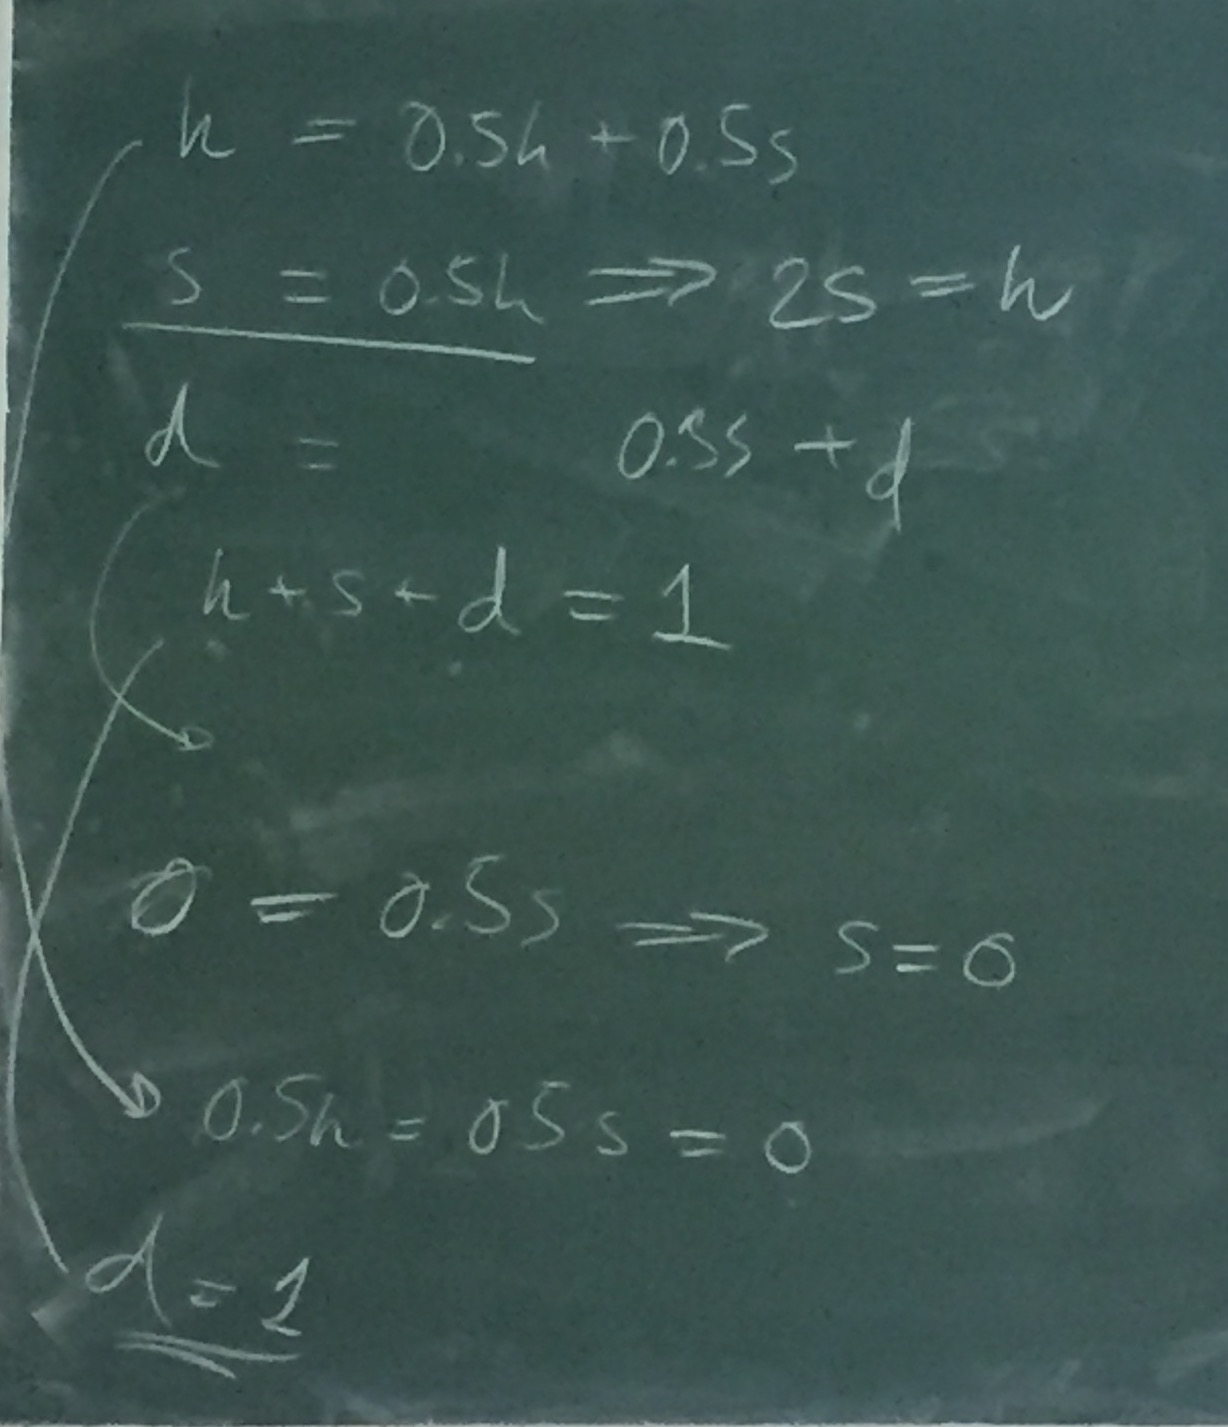 h = 0.5h + 0.5s
s = 0.5h ⟹ 2s = h
d = 0.5s + d
h + s + d = 1
0 = 0.5s ⟹ s = 0
0.5h = 05s = 0
d = 1